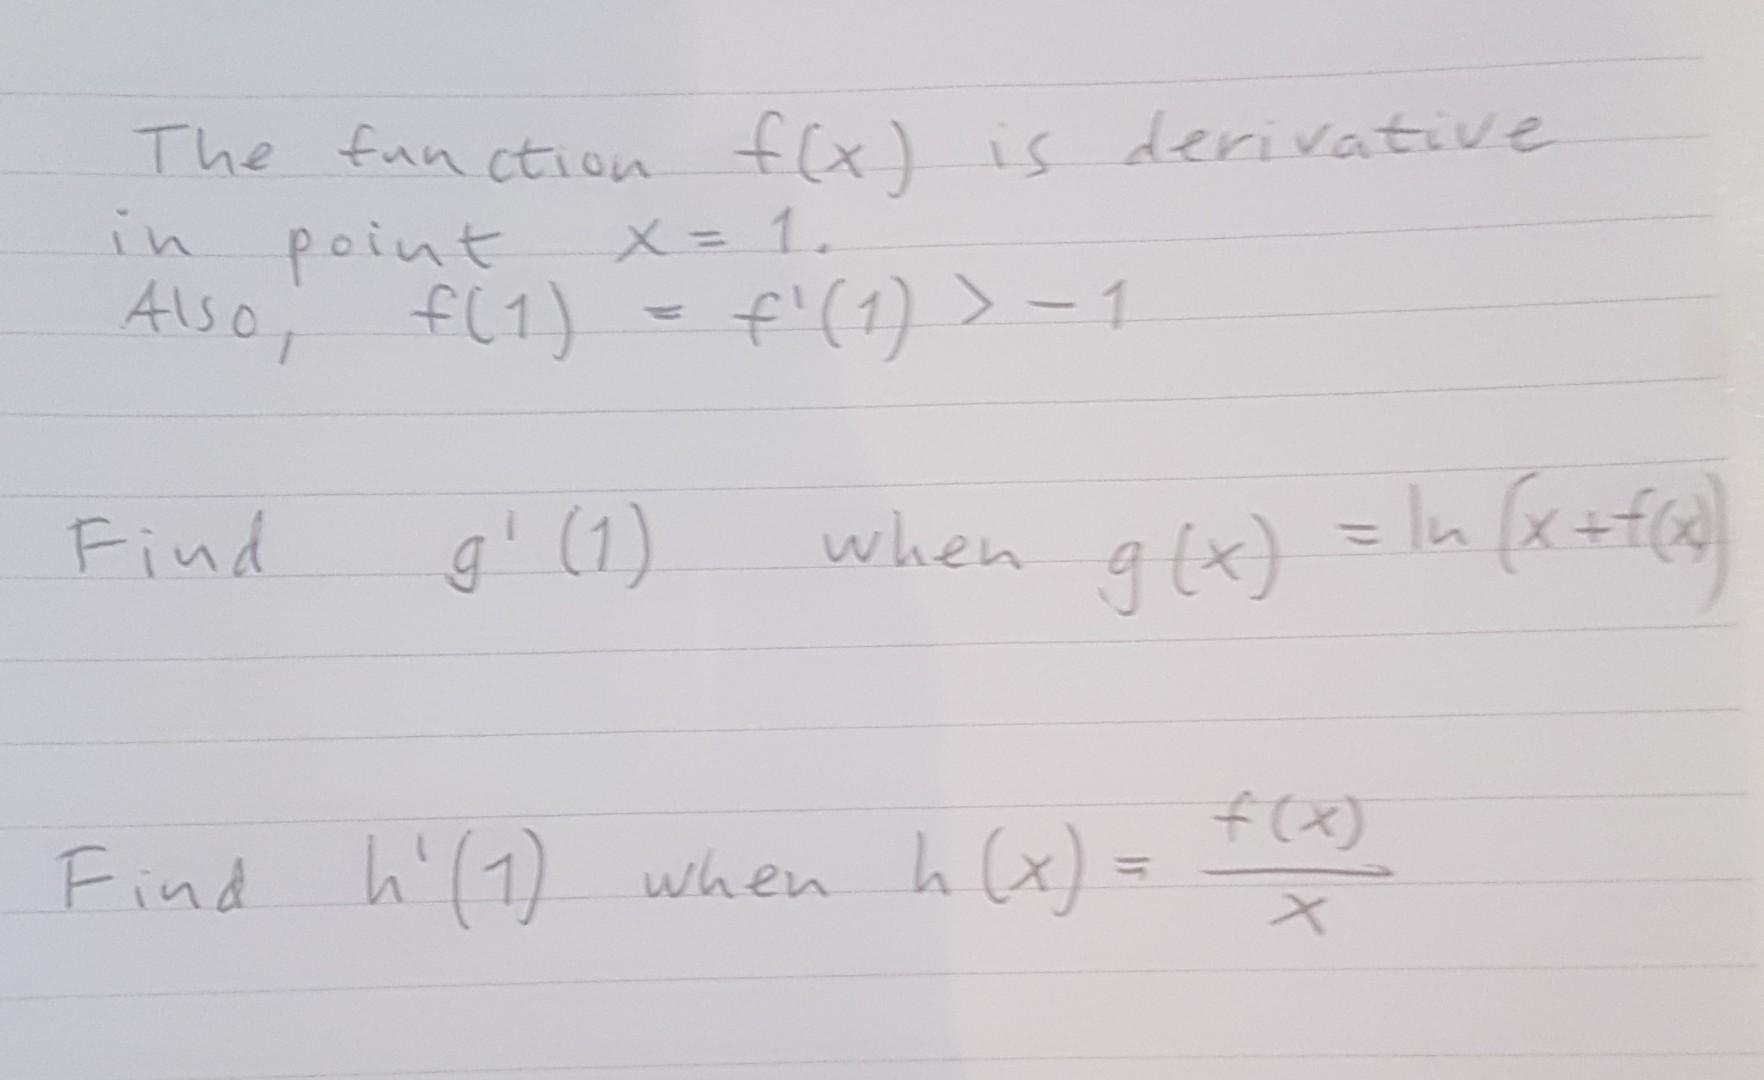 The function f(x) is derivative
in point x = 1.
Also, f(1) = f'(1) > -1
Find g'(1) when g(x) = ln(x+f(x))
Find h'(1) when h(x) = f(x)/x